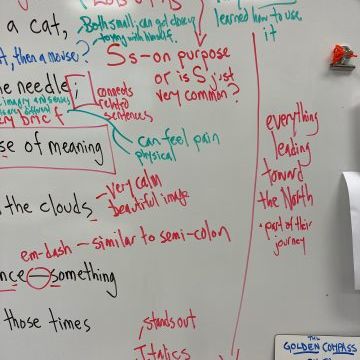 a cat,
Both small; can get done by
toying with himself.
learned how to use
it
t, then a mouse?
Ss - on purpose
or is S just
very common?
he needle;
connects
related
sentences
very brief
se of meaning
can feel pain
physical
everything
leading
toward
the North
• part of their
journey
very calm
beautiful image
the clouds.
em-dash - similar to semi-colon
nce—something
those times
, stands out
Italics
THE
GOLDEN COMPASS